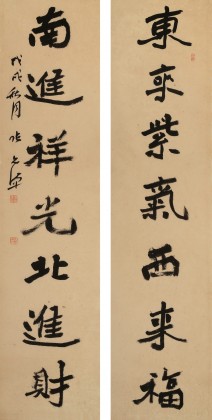 東來紫氣西来福
南進祥光北進財
戊戌秋月